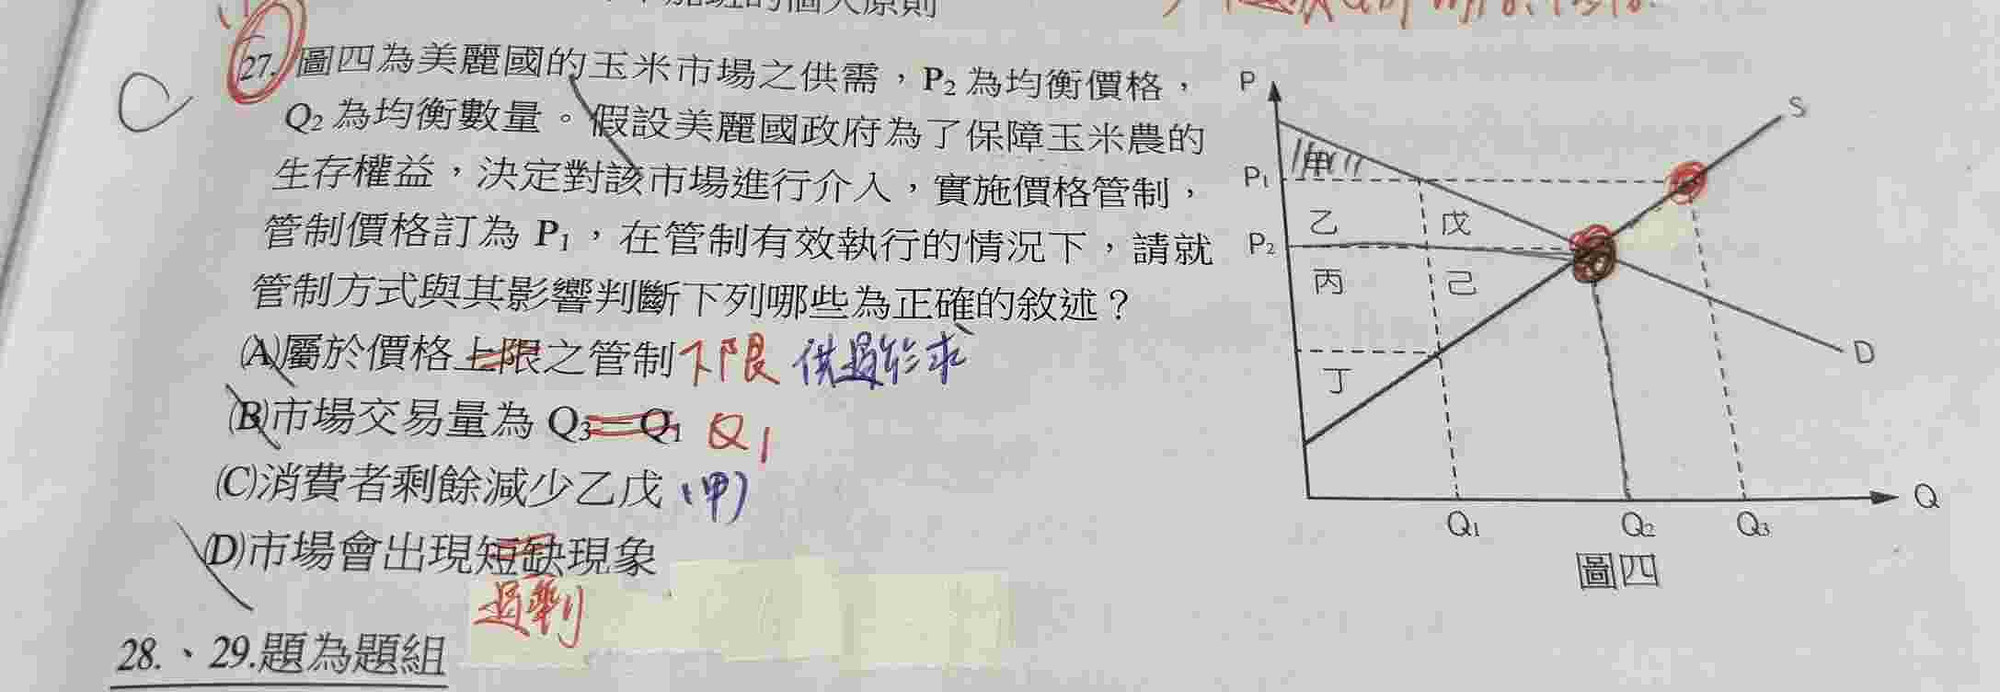 27.圖四為美麗國的玉米市場之供需，P2為均衡價格，
Q2為均衡數量。假設美麗國政府為了保障玉米農的
生存權益，決定對該市場進行介入，實施價格管制，
管制價格訂為P1，在管制有效執行的情況下，請就
管制方式與其影響判斷下列哪些為正確的敘述？
(A)屬於價格上限之管制 下限 供過於求
(B)市場交易量為Q3－Q1 Q1
(C)消費者剩餘減少乙戊(甲)
(D)市場會出現短缺現象
過剩
28.、29.題為題組
C
P
S
P1
甲
乙
戊
P2
丙
己
D
丁
Q
Q1
Q2
Q3
圖四